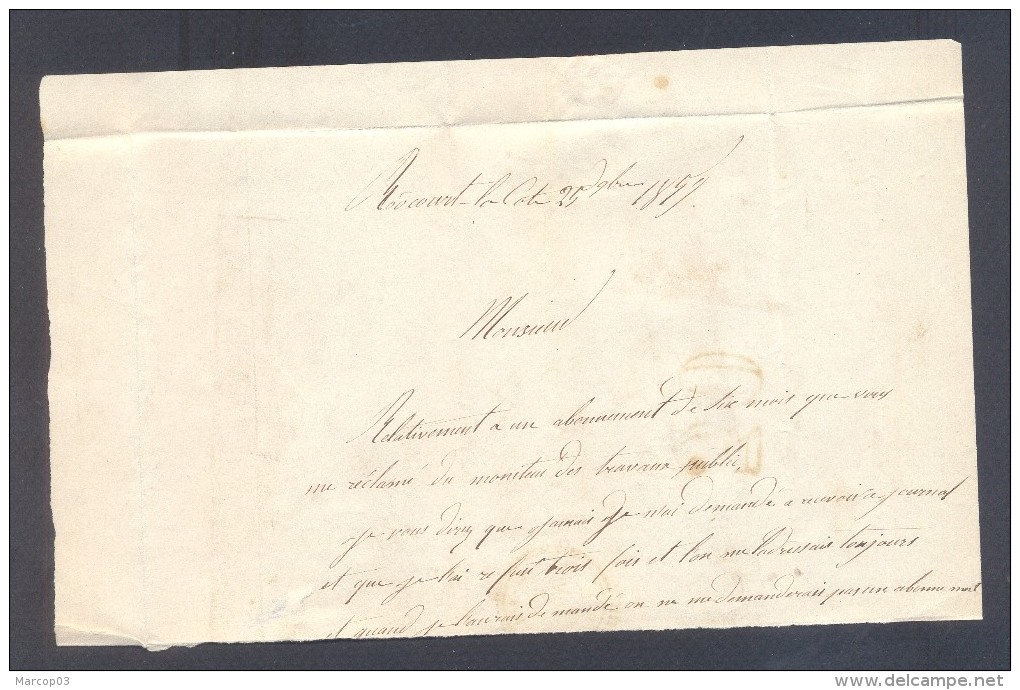 Roôcourt-la Côte 25 9bre 1857
Monsieur
Relativement a un abonnement de six mois que vous
me réclamé du moniteur des travaux public,
je vous diray que jamais je n'ai demandé a recevoir ce journal
et que je l'ai refusé trois fois et l'on me l'adressais toujours
et quand je l'aurais demandé on ne me demanderais pas un abonnement
Marcop03
delcampe.net